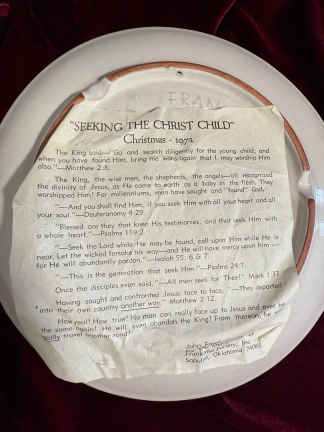 FRAN
"SEEKING THE CHRIST CHILD"
Christmas - 1972
The King said— Go and search diligently for the young child; and
when you have found Him, bring me word again that I may worship Him
also."—Matthew 2:8.
The King, the wise men, the shepherds, the angels—all recognized
the divinity of Jesus, as He came to earth as a baby in the flesh. They
worshipped Him! For millenniums, men have sought and "found" God.
"—And you shall find Him, if you seek Him with all your heart and all
your soul."—Deuteronomy 4:29
"Blessed are they that keep His testimonies, and that seek Him with
a whole heart."—Psalms 119:2.
"—Seek the Lord while He may be found, call upon Him while He is
near. Let the wicked forsake his way—and He will have mercy upon him—
for He will abundantly pardon."—Isaiah 55: 6 & 7.
"—This is the generation that seek Him."—Psalms 24:7.
Once the disciples even said, "—All men seek for Thee!" Mark 1:37
Having sought and confronted Jesus face to face, "—They departed
into their own country another way." Matthew 2:12.
How true! No man can really face up to Jesus and ever be
the same again! He will even abandon the King! From thereon, he will
really travel another road!
John Frank
Frankoma Pottery, Inc.
Sapulpa, Oklahoma 74066